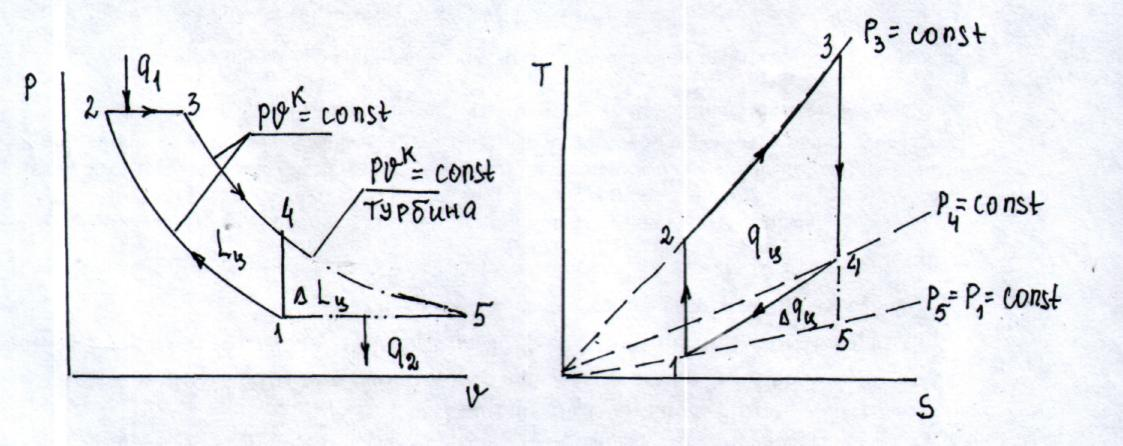 P
q₁
2
3
pv^K = const
pv^K = const
ТУРБИНА
4
Lц
ΔLц
1
5
q₂
v
T
3
P₃ = const
2
qц
P₄ = const
4
Δqц
P₅ = P₁ = const
5
1
S